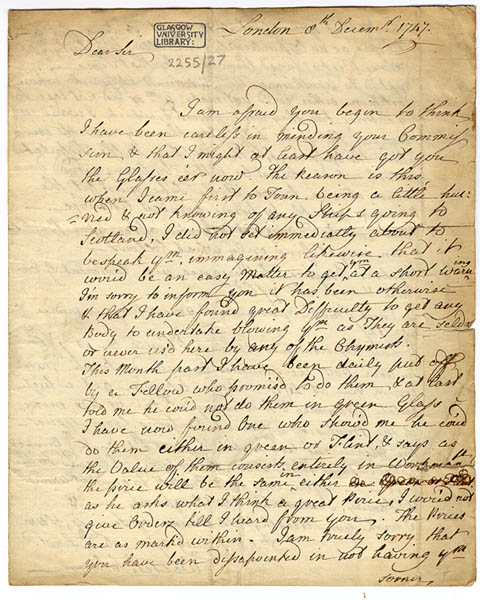 London 8th Decemr. 1747.
GLASGOW
UNIVERSITY
LIBRARY:
2255/27
Dear Sir
I am afraid you begin to think
I have been careless in minding your Commis
sion & that I might at least have got you
the Glasses ear now. The reason is this
when I came first to Toun being a little hur:
ried & not knowing of any Ships going to
Scotland, I did not set immediatly about to
bespeak ym, immagining likewise that it
wou'd be an easy Matter to get ym at a short warning
I'm sorry to inform you it has been otherwise
& that I have found great Difficulty to get any
Body to undertake blowing ym as They are seldom
or never us'd here by any of the Chymists.
This Month past I have been daily put off
by a Fellow who promis'd to do them & at last
told me he cou'd not do them in green Glass
I have now found One who show'd me he cou'd
do them either in green or Flint, & says as
the Value of them consists entirely in Workmanp
the price will be the same in either
as he asks what I think a great Price, I wou'd not
give Orders till I heard from you. The Prices
are as marked within. I am truely sorry that
you have been dissapointed in not having ym
sooner,